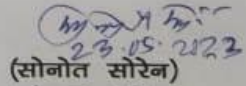 23.05.2023
(सोनोत सोरेन)